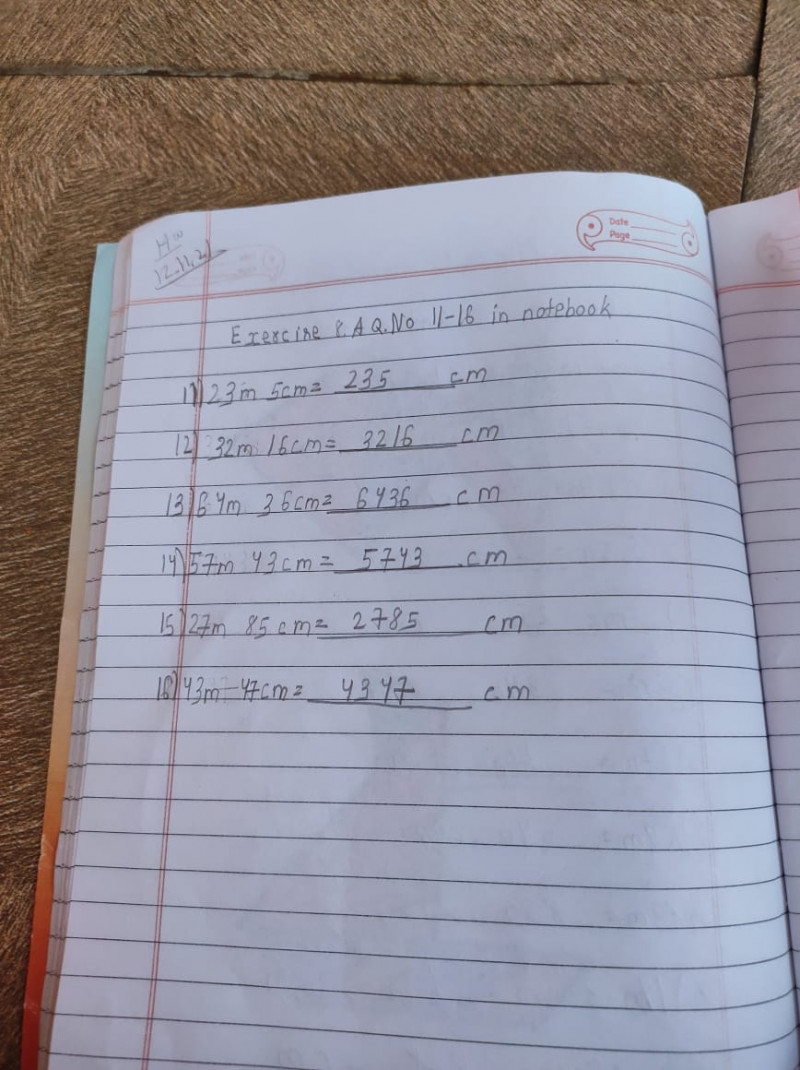 H.W
12.11.21
Date
Page
Exercise 8.A Q.No 11-16 in notebook
11) 23m 5cm = 235 cm
12) 32m 16cm = 3216 cm
13) 64m 36cm = 6436 cm
14) 57m 43cm = 5743 cm
15) 27m 85cm = 2785 cm
16) 43m 47cm = 4347 cm